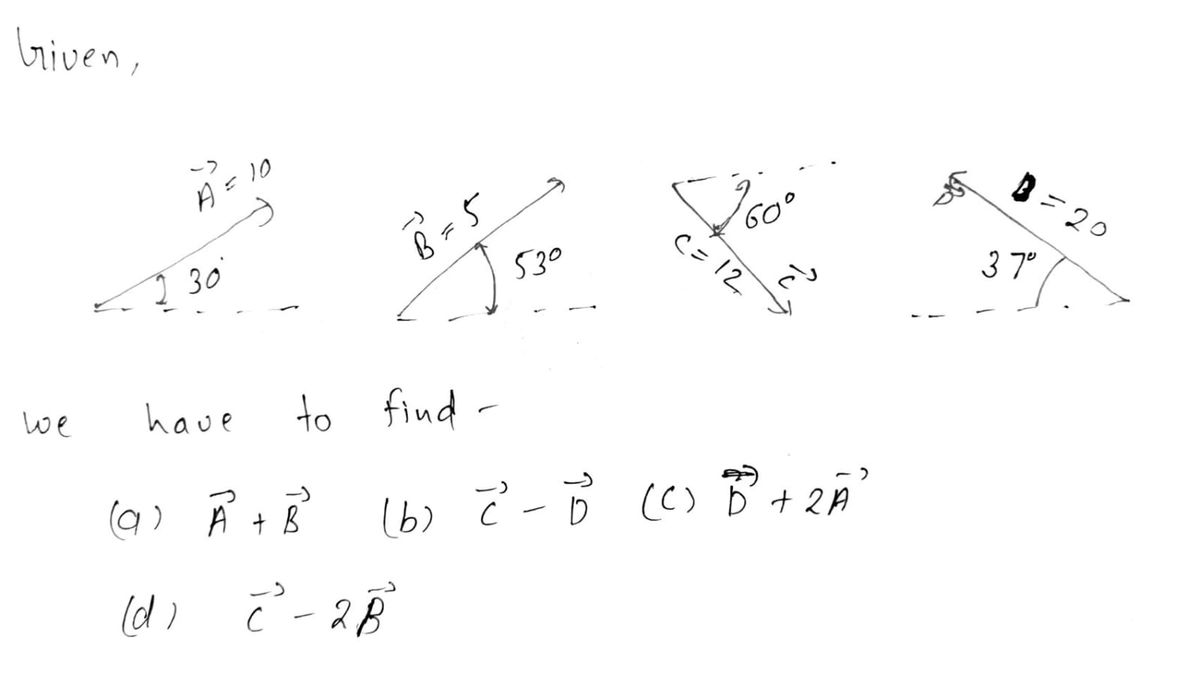 Given,
A⃗ = 10
30°
B⃗ = 5
53°
60°
C = 12
C⃗
D = 20
37°
we have to find -
(a) A⃗ + B⃗ (b) C⃗ - D⃗ (c) D⃗ + 2A⃗
(d) C⃗ - 2B⃗